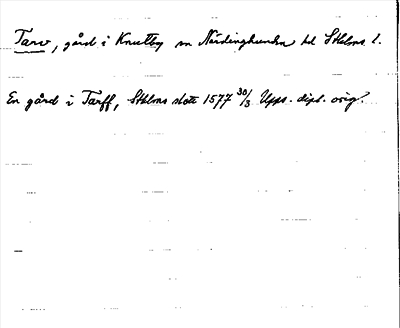 Tarv, gård i Knutby sn Närdinghundra hd Sthlms l.
En gård i Tarff, Sthlms slott 1577 30/3 Upps. dipl. orig.